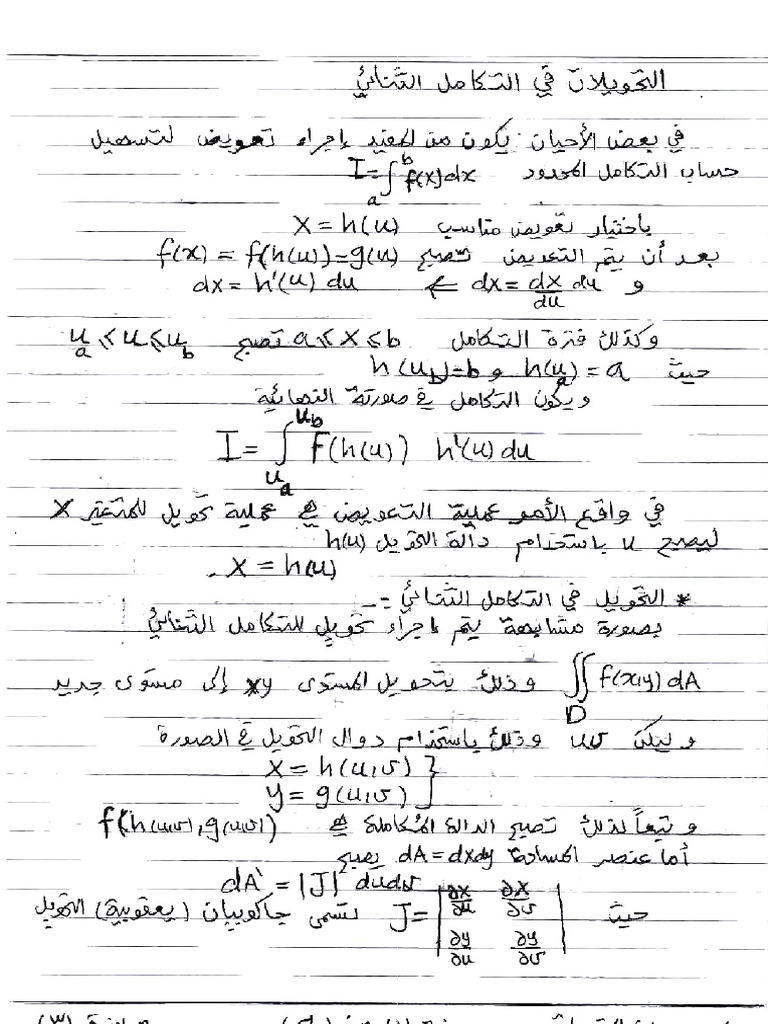 التحويلات في التكامل الثنائي
في بعض الأحيان يكون من المفيد إجراء تعويض لتسهيل
حساب التكامل المحدود I = ∫_a^b f(x)dx
باختيار تعويض مناسب x = h(u)
بعد أن يتم التعويض تصبح f(x) = f(h(u)) = g(u)
و dx = dx/du du ⇐ dx = h'(u) du
وكذلك فترة التكامل a ≤ x ≤ b تصبح u_a ≤ u ≤ u_b
حيث h(u_a) = a و h(u_b) = b
ويكون التكامل في صورته النهائية
I = ∫_{u_a}^{u_b} f(h(u)) h'(u) du
في واقع الأمر عملية التعويض هي عملية تحويل للمتغير x
ليصبح u باستخدام دالة التحويل h(u)
x = h(u)
* التحويل في التكامل الثنائي :-
بصورة مشابهة يتم إجراء تحويل للتكامل الثنائي
∬_D f(x,y) dA وذلك بتحويل المستوى xy إلى مستوى جديد
وليكن uv وذلك باستخدام دوال التحويل في الصورة
x = h(u,v) }
y = g(u,v) }
وتبعاً لذلك تصبح الدالة المكاملة هي f(h(u,v), g(u,v))
أما عنصر المساحة dA = dxdy يصبح
dA' = |J| dudv
حيث J = | ∂x/∂u ∂x/∂v | تسمى جاكوبيان (يعقوبية) التحويل
| ∂y/∂u ∂y/∂v |